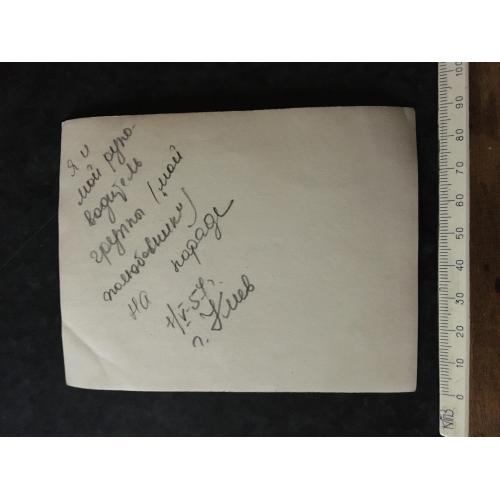 Я и
мой руко-
водитель
группы (мой
"полюбовник")
на параде
1/V-57г.
г. Киев
0 10 20 30 40 50 60 70 80 90 100